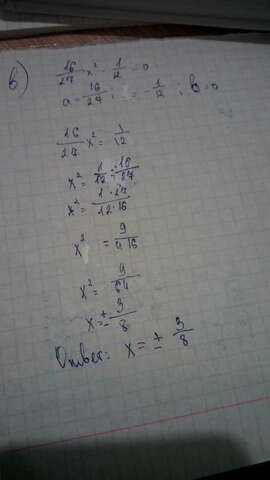 в)
16/27 x² - 1/12 = 0
a = 16/27; c = -1/12; b = 0
16/27 x² = 1/12
x² = 1/12 : 16/27
x² = 1·27/12·16
x² = 9/4·16
x² = 9/64
x = ± 3/8
Ответ: x = ± 3/8